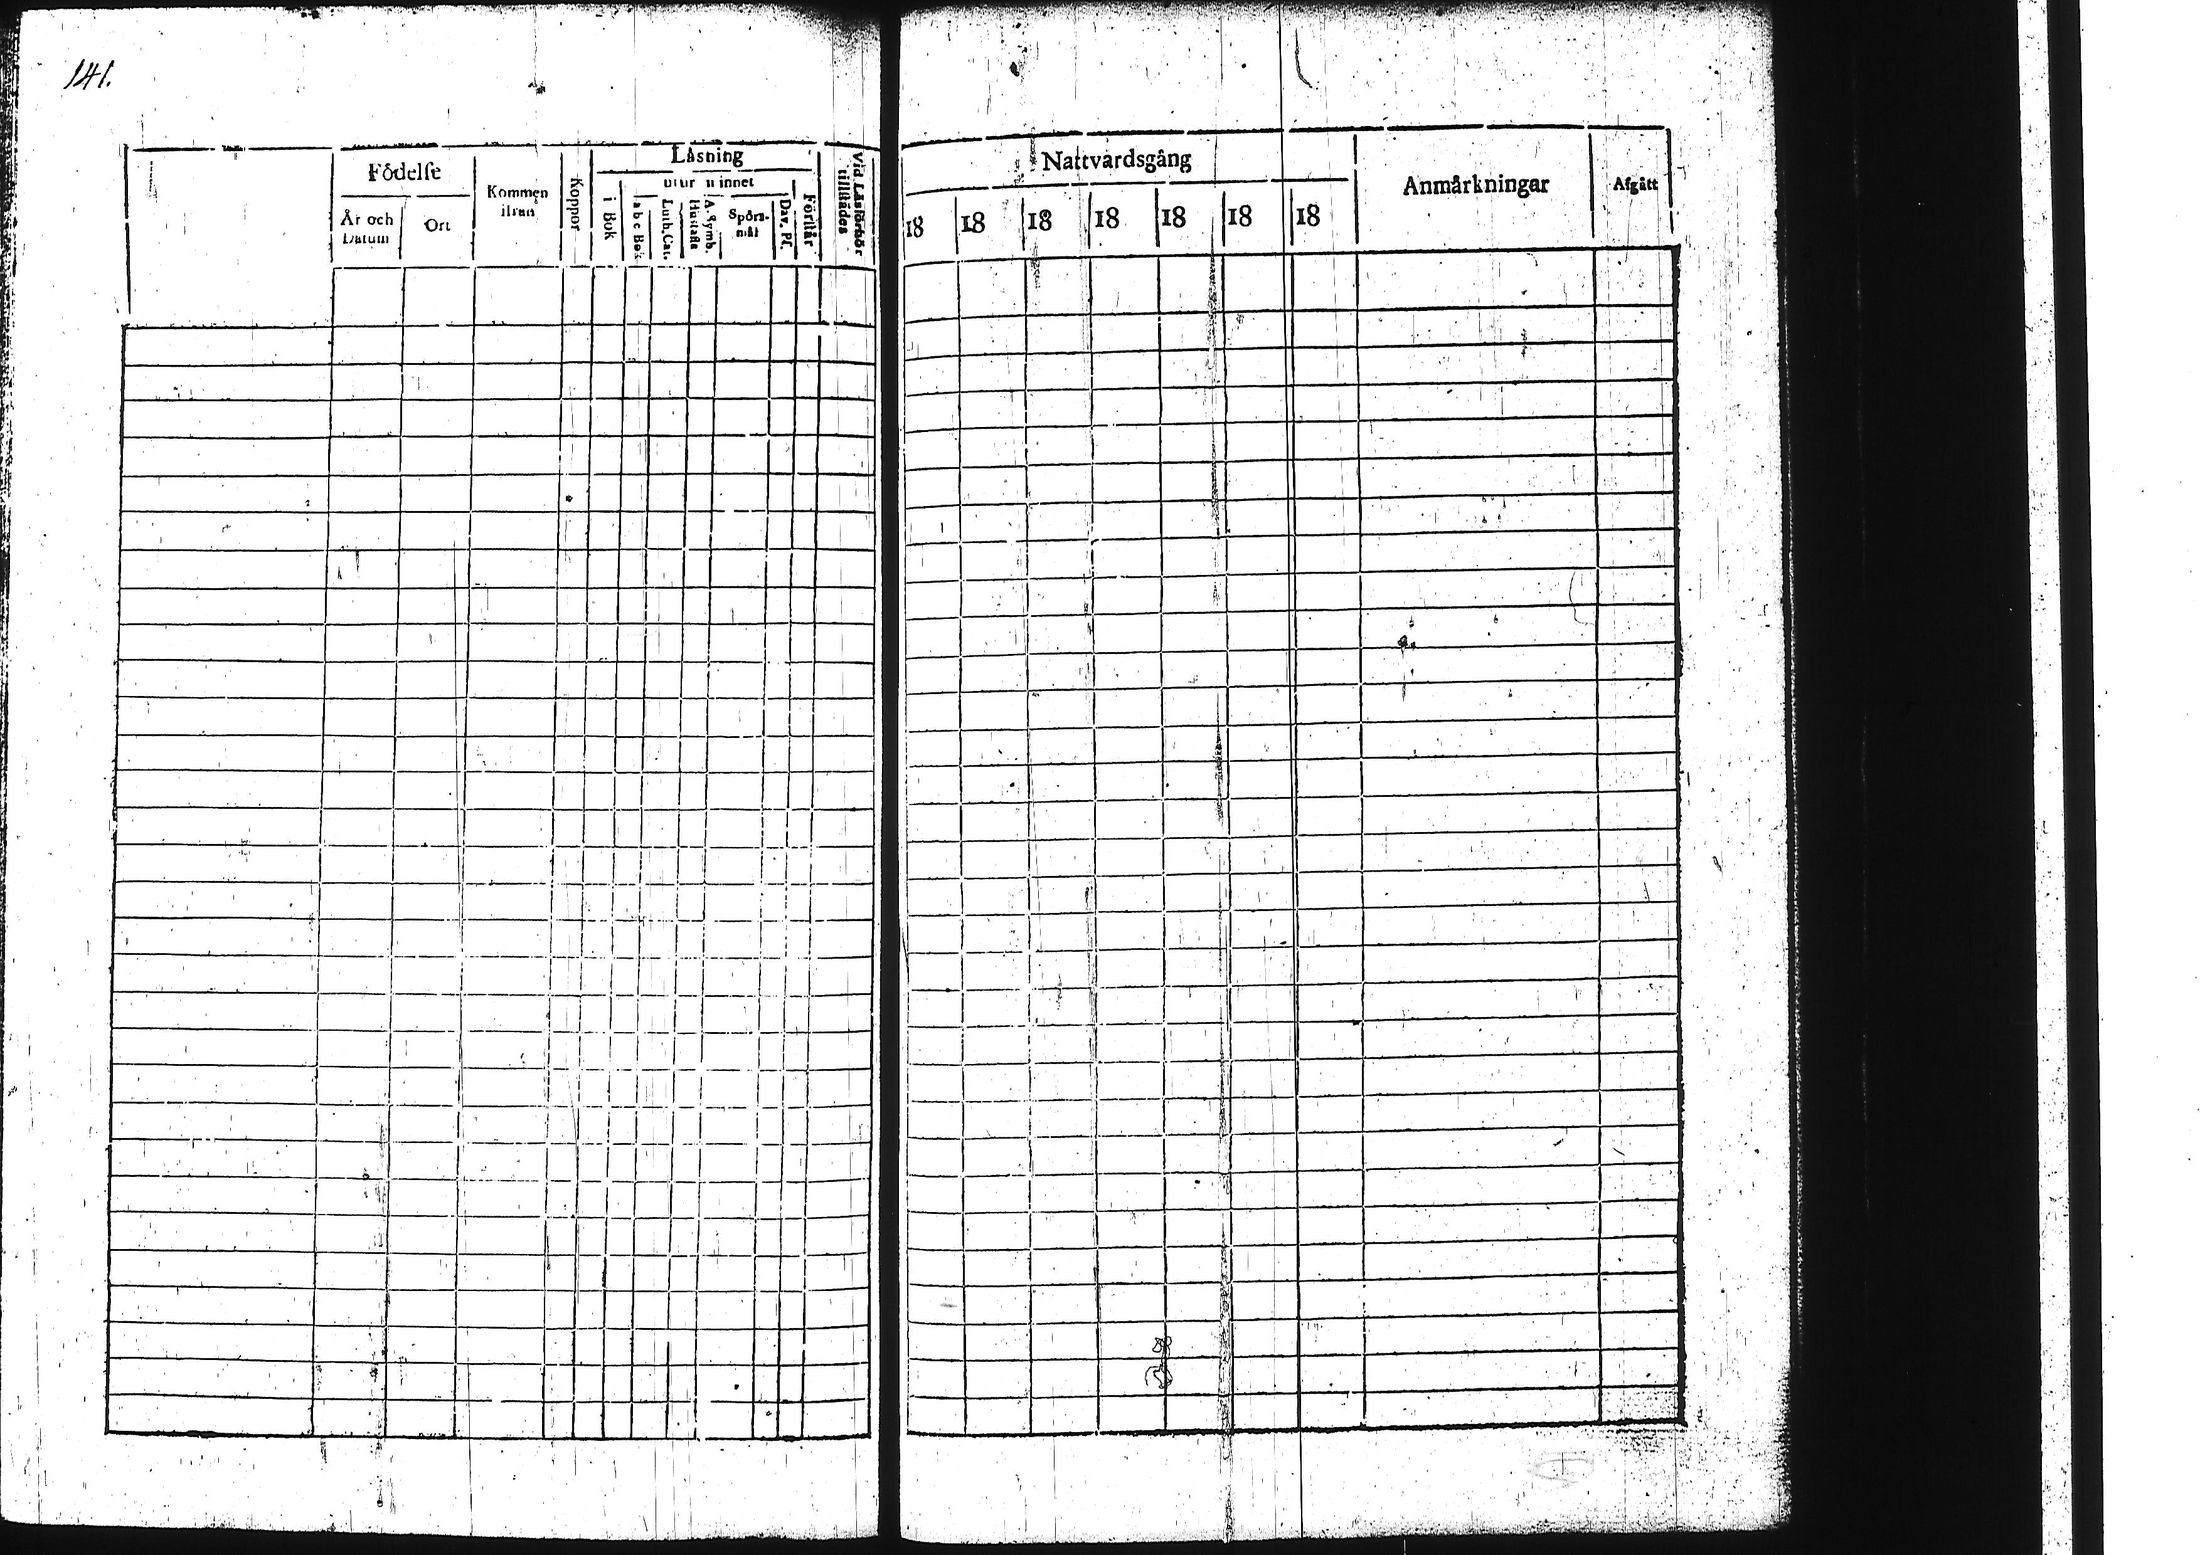 141.
Födelse
År och Datum
Ort
Kommen ifrån
Koppor
Läsning
utur minnet
i Bok
a b c Bok
Luth. Cat.
Hustafla
A. Symb.
Spörsmål
Dav. Ps.
Förstår
Vid Läsförhör tillstädes
Nattvardsgång
18 18 18 18 18 18 18
Anmärkningar
Afgått